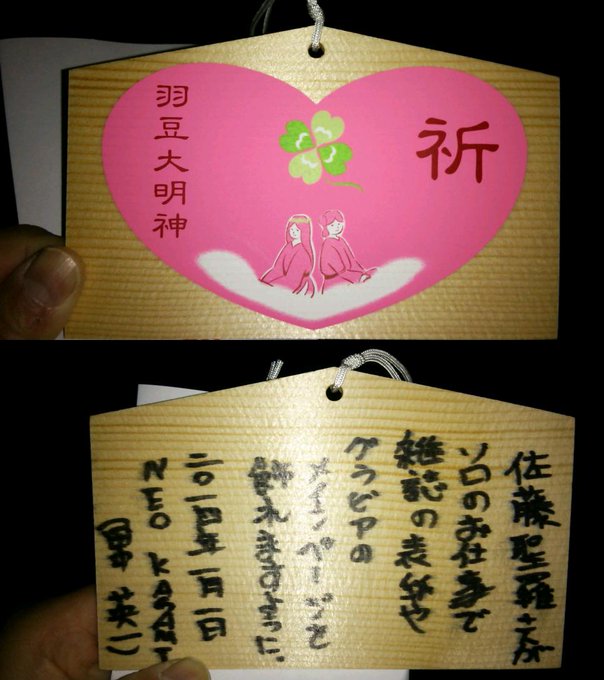 祈
羽豆大明神
佐藤聖羅さんが
ソロのお仕事で
雑誌の表紙や
グラビアの
メインページを
飾れますように
二〇一四年一月一日
NEO
英一